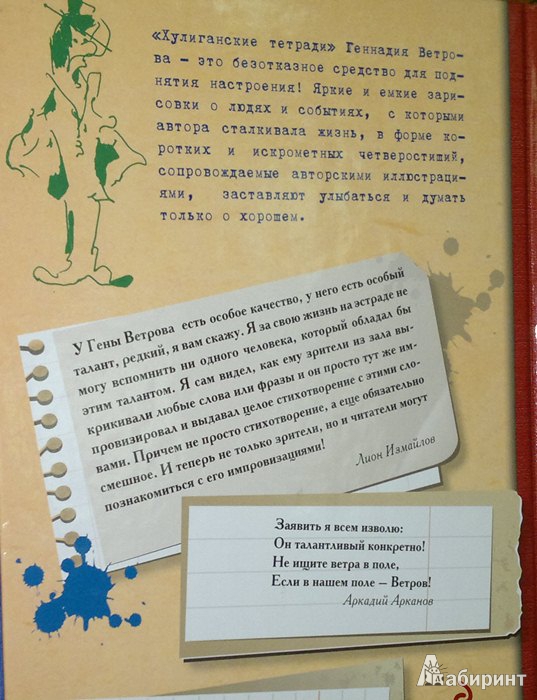 «Хулиганские тетради» Геннадия Ветро-
ва – это безотказное средство для под-
нятия настроения! Яркие и емкие зари-
совки о людях и событиях, с которыми
автора сталкивала жизнь, в форме ко-
ротких и искрометных четверостиший,
сопровождаемые авторскими иллюстраци-
ями, заставляют улыбаться и думать
только о хорошем.
У Гены Ветрова есть особое качество, у него есть особый
талант, редкий, я вам скажу. Я за свою жизнь на эстраде не
могу вспомнить ни одного человека, который обладал бы
этим талантом. Я сам видел, как ему зрители из зала вы-
крикивали любые слова или фразы и он просто тут же им-
провизировал и выдавал целое стихотворение с этими сло-
вами. Причем не просто стихотворение, а еще обязательно
смешное. И теперь не только зрители, но и читатели могут
познакомиться с его импровизациями!
Лион Измайлов
Заявить я всем изволю:
Он талантливый конкретно!
Не ищите ветра в поле,
Если в нашем поле – Ветров!
Аркадий Арканов
Лабиринт